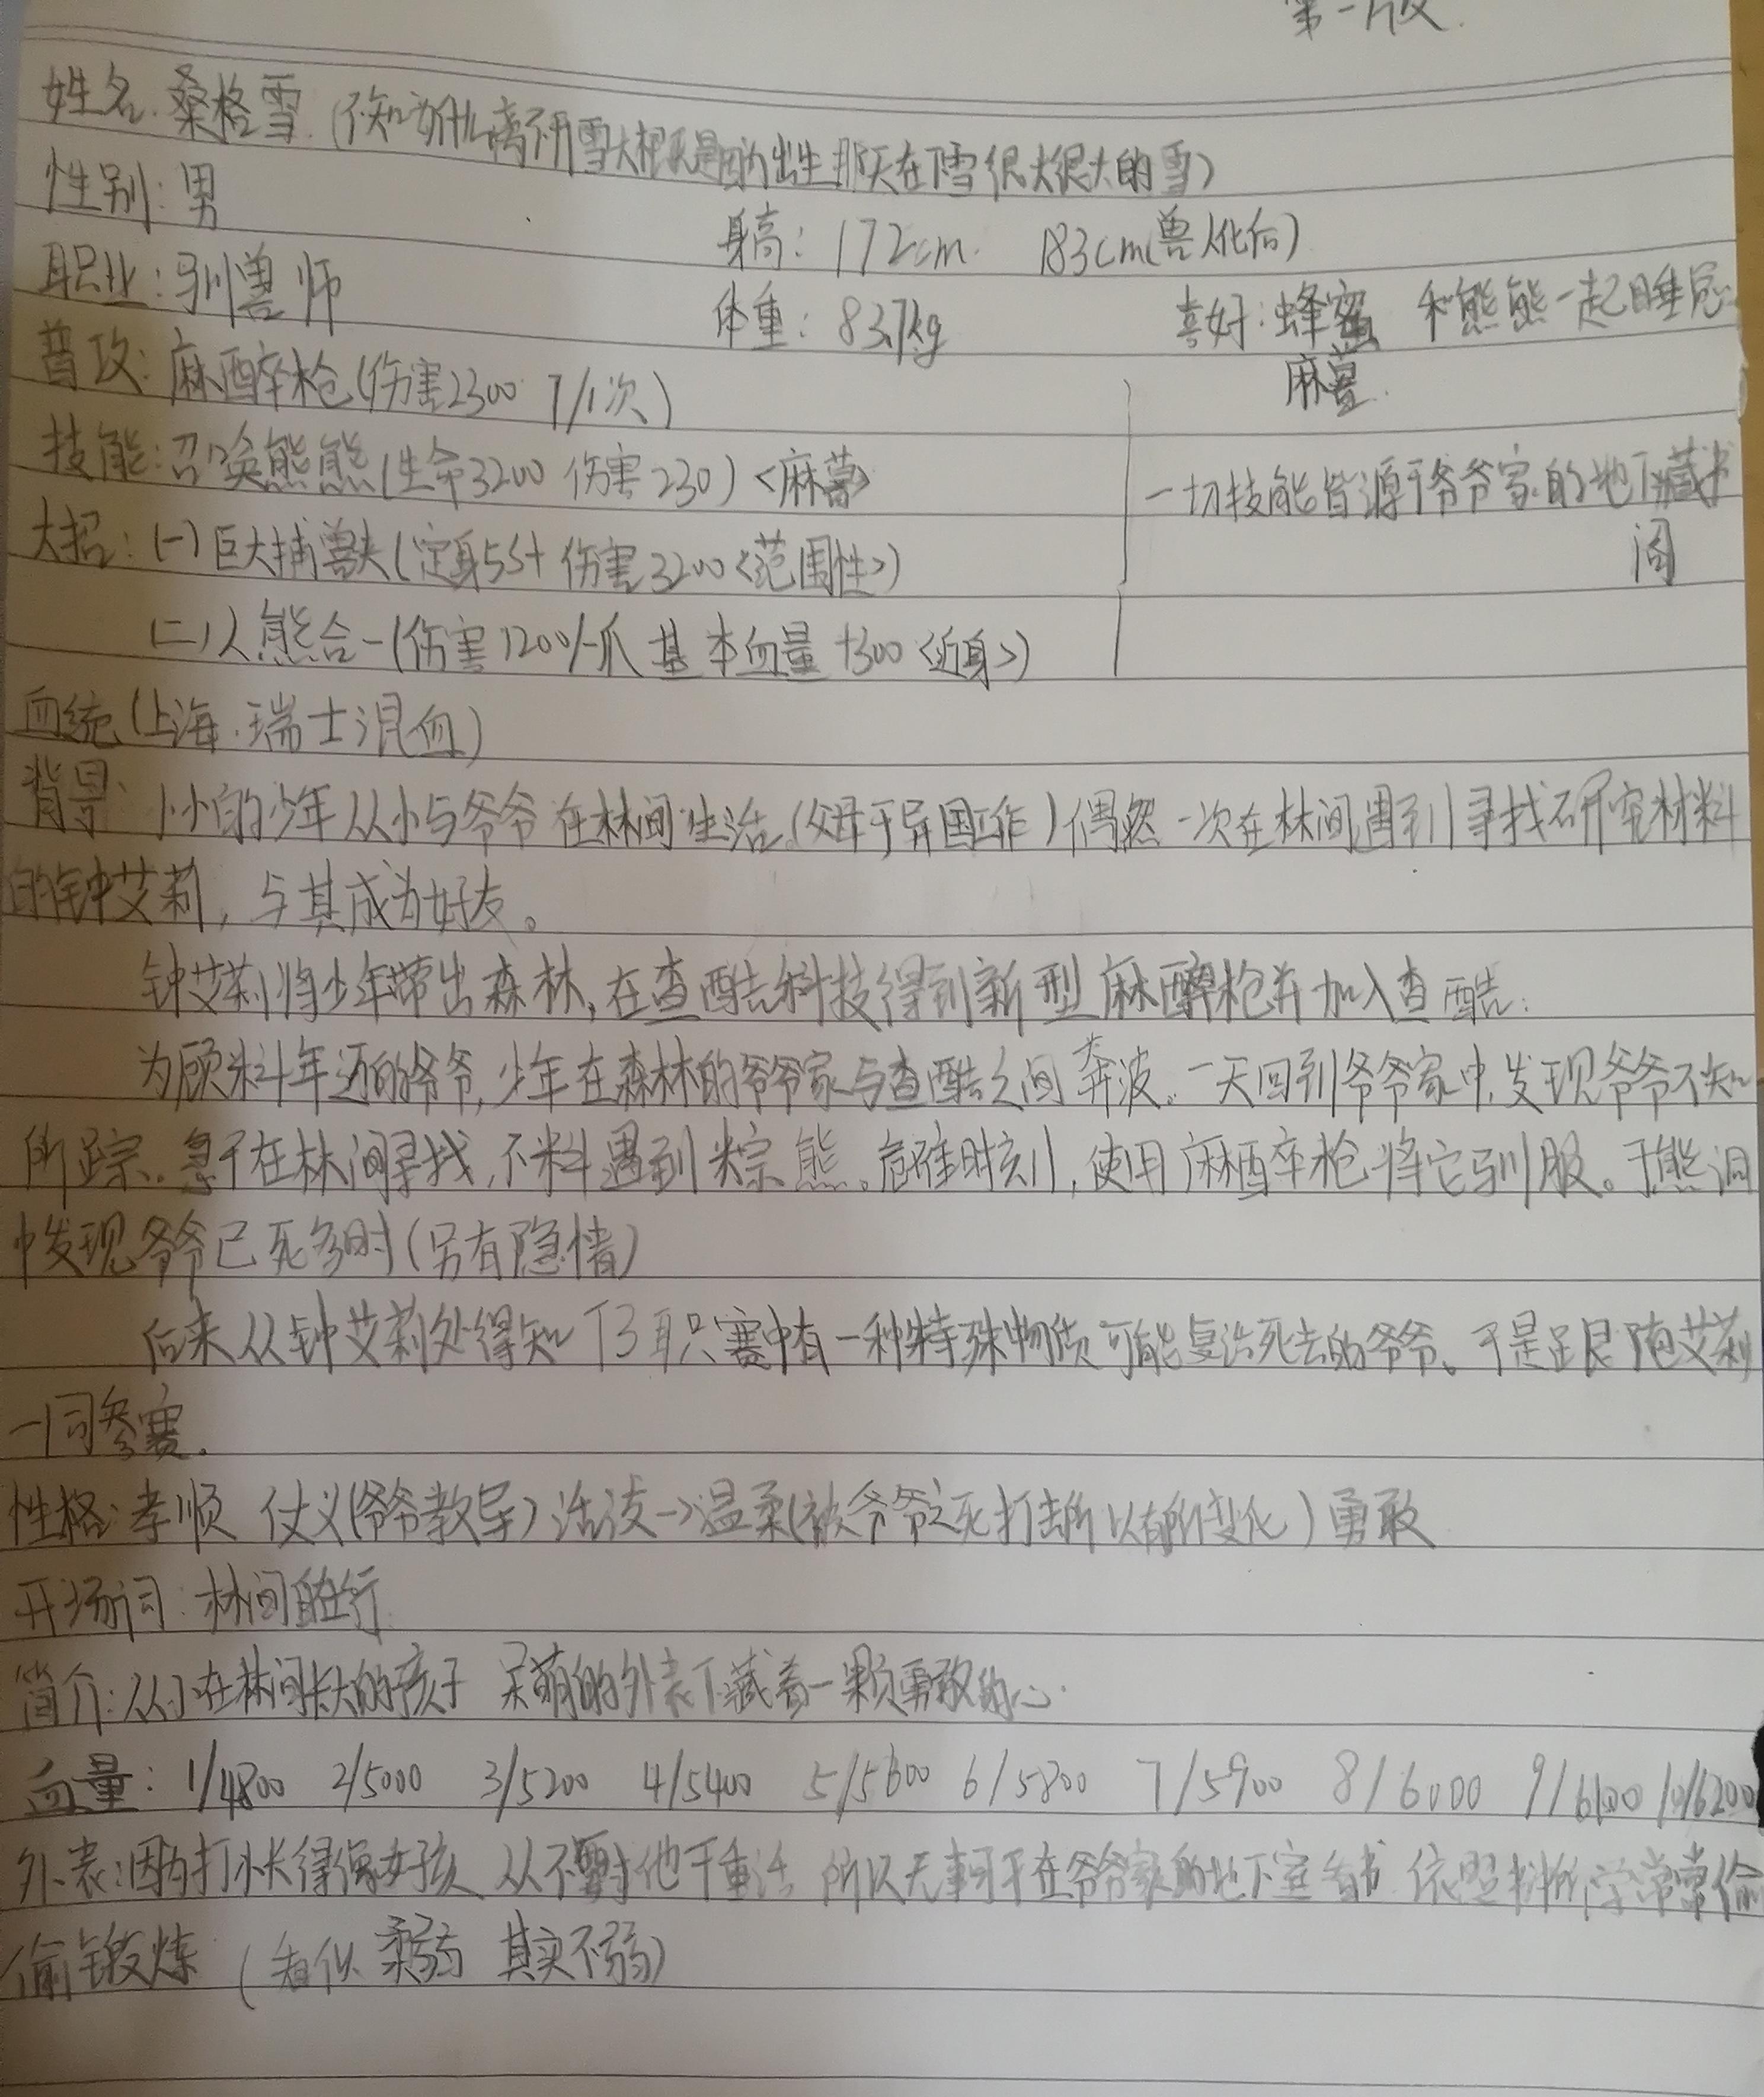 第一版
姓名:桑格雪(不知为什么离不开雪大概是因为出生那天在下雪很大很大的雪)
性别:男
身高:172cm 183cm(兽化后)
职业:驯兽师
体重:83.7kg 喜好:蜂蜜 和熊熊一起睡觉
麻薯
普攻:麻醉枪(伤害2300 7/1次)
技能:召唤熊熊(生命3200 伤害230)<麻薯>
一切技能皆源于爷爷家的地下藏书
阁
大招:(一)巨大捕兽夹(定身5s+伤害3200<范围性>)
(二)人熊合一(伤害1200/一爪 基本血量+300<近身>)
血统(上海.瑞士混血)
背景:小小的少年从小与爷爷在林间生活(父母于异国工作)偶然一次在林间遇到寻找研究材料
的钟艾莉,与其成为好友。
钟艾莉将少年带出森林,在查酷科技得到新型麻醉枪并加入查酷.
为顾料年迈的爷爷,少年在森林的爷爷家与查酷之间奔波。一天回到爷爷家中,发现爷爷不知
所踪。急于在林间寻找,不料遇到棕熊。危难时刻,使用麻醉枪将它驯服。于熊洞
中发现爷爷已死多时(另有隐情)
后来从钟艾莉处得知T3职赛中有一种特殊物质可能复活死去的爷爷。于是跟随艾莉
一同参赛.
性格:孝顺 仗义(爷爷教导)活泼→温柔(被爷爷之死打击所以有所变化)勇敢
开场词:林间自在行
简介:从小在林间长大的孩子 呆萌的外表下藏着一颗勇敢的心.
血量:1/4800 2/5000 3/5200 4/5400 5/5600 6/5800 7/5900 8/6000 9/6100 10/6200
外表:因为打小长得像女孩 从不要他干重活 所以无事可干在爷爷家的地下室看书 依照书所学常常偷
偷锻炼(看似柔弱 其实不弱)